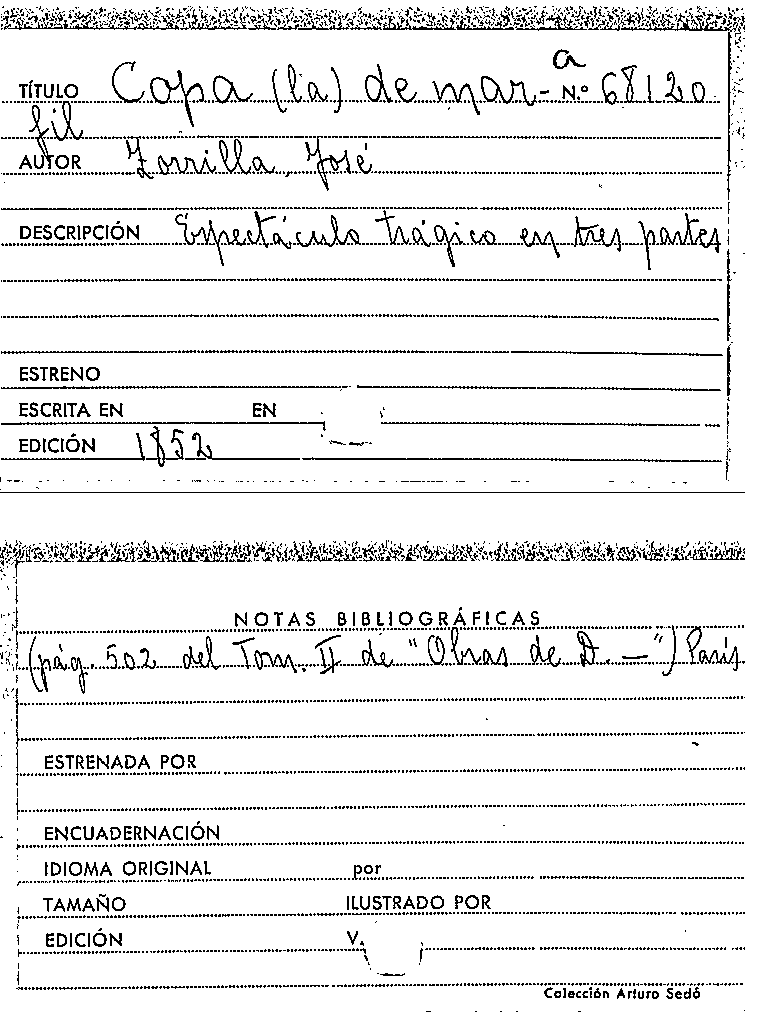 a
TÍTULO Copa (la) de mar- N.º 68120
fil
AUTOR Zorrilla, José
DESCRIPCIÓN Espectáculo trágico en tres partes
ESTRENO
ESCRITA EN EN
EDICIÓN 1852
NOTAS BIBLIOGRÁFICAS
(pág. 502 del Tom. II de "Obras de D. —") París.
ESTRENADA POR
ENCUADERNACIÓN
IDIOMA ORIGINAL por
TAMAÑO ILUSTRADO POR
EDICIÓN V.
Colección Arturo Sedó